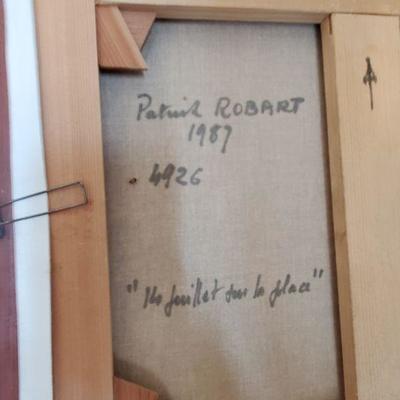 Patrick ROBART
1987
4926
"14 juillet sur la place"